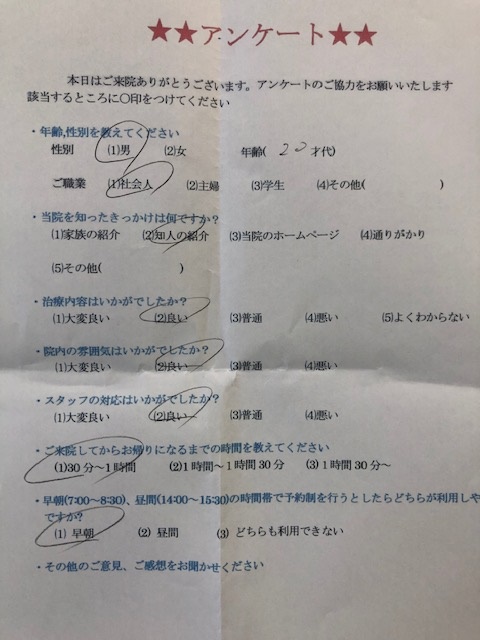 ★★アンケート★★
本日はご来院ありがとうございます。アンケートのご協力をお願いいたします
該当するところに○印をつけてください
・年齢,性別を教えてください
性別 (1)男 (2)女 年齢( 20 才代)
ご職業 (1)社会人 (2)主婦 (3)学生 (4)その他( )
・当院を知ったきっかけは何ですか?
(1)家族の紹介 (2)知人の紹介 (3)当院のホームページ (4)通りがかり
(5)その他( )
・治療内容はいかがでしたか?
(1)大変良い (2)良い (3)普通 (4)悪い (5)よくわからない
・院内の雰囲気はいかがでしたか?
(1)大変良い (2)良い (3)普通 (4)悪い
・スタッフの対応はいかがでしたか?
(1)大変良い (2)良い (3)普通 (4)悪い
・ご来院してからお帰りになるまでの時間を教えてください
(1)30分~1時間 (2)1時間~1時間30分 (3)1時間30分~
・早朝(7:00~8:30)、昼間(14:00~15:30)の時間帯で予約制を行うとしたらどちらが利用しや
ですか?
(1) 早朝 (2) 昼間 (3) どちらも利用できない
・その他のご意見、ご感想をお聞かせください